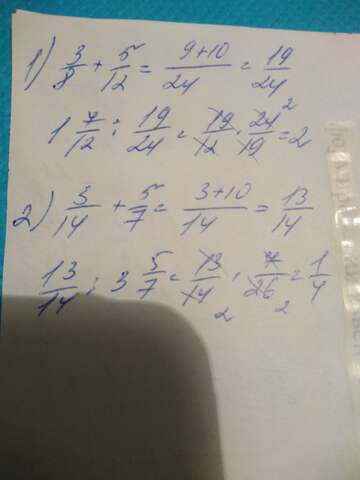 1) 3/8 + 5/12 = 9+10/24 = 19/24
1 7/12 : 19/24 = 19/12 · 24/19 = 2
2) 3/14 + 5/7 = 3+10/14 = 13/14
13/14 : 3 5/7 = 13/14 · 7/26 = 1/4